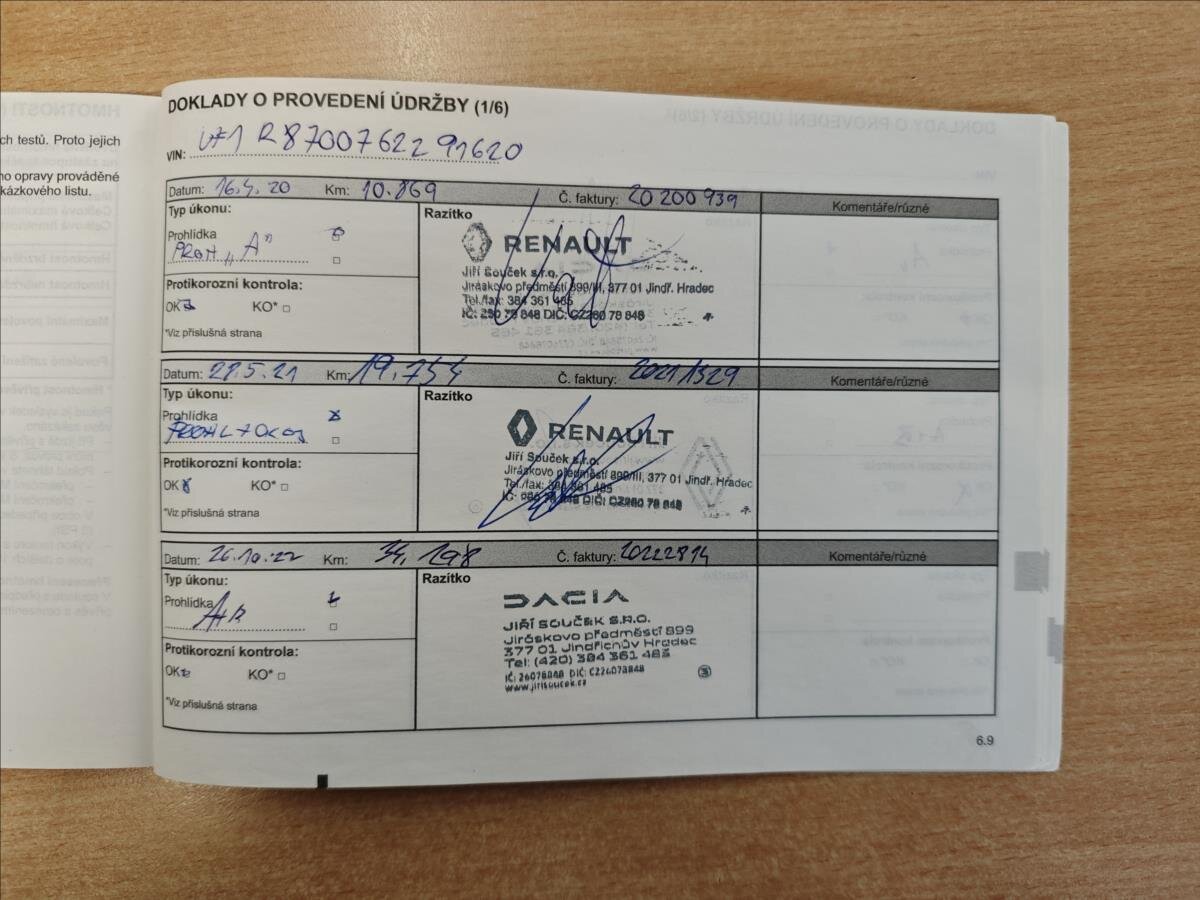 ch testů. Proto jejich
no opravy prováděné
kázkového listu.
DOKLADY O PROVEDENÍ ÚDRŽBY (1/6)
VIN: VF1 R8700762291620
Datum: 16.4.20 Km: 10.869 Č. faktury: 20 200 939 Komentáře/různé
Typ úkonu:
Razítko
Prohlídka
PROH „A"
RENAULT
Jiří Souček s.r.o.
Jiráskovo předměstí 899/III, 377 01 Jindř. Hradec
Tel./fax: 384 361 485
IČ: 260 78 848 DIČ: CZ260 78 848
Protikorozní kontrola:
OK KO*
*Viz příslušná strana
Datum: 27.5.21 Km: 19.754 Č. faktury: 2021 1329 Komentáře/různé
Typ úkonu:
Razítko
Prohlídka
RENAULT
Jiří Souček s.r.o.
Jiráskovo předměstí 899/III, 377 01 Jindř. Hradec
Tel./fax: 384 361 485
IČ: 260 78 848 DIČ: CZ260 78 848
Protikorozní kontrola:
OK KO*
*Viz příslušná strana
Datum: 26.10.22 Km: 34,198 Č. faktury: 20222814 Komentáře/různé
Typ úkonu:
Razítko
Prohlídka
DACIA
JIŘÍ SOUČEK S.R.O.
Jiráskovo předměstí 899
377 01 Jindřichův Hradec
Tel: (420) 384 361 485
IČ: 26078848 DIČ: CZ26078848
www.jirisoucek.cz
3
Protikorozní kontrola:
OK KO*
*Viz příslušná strana
6.9